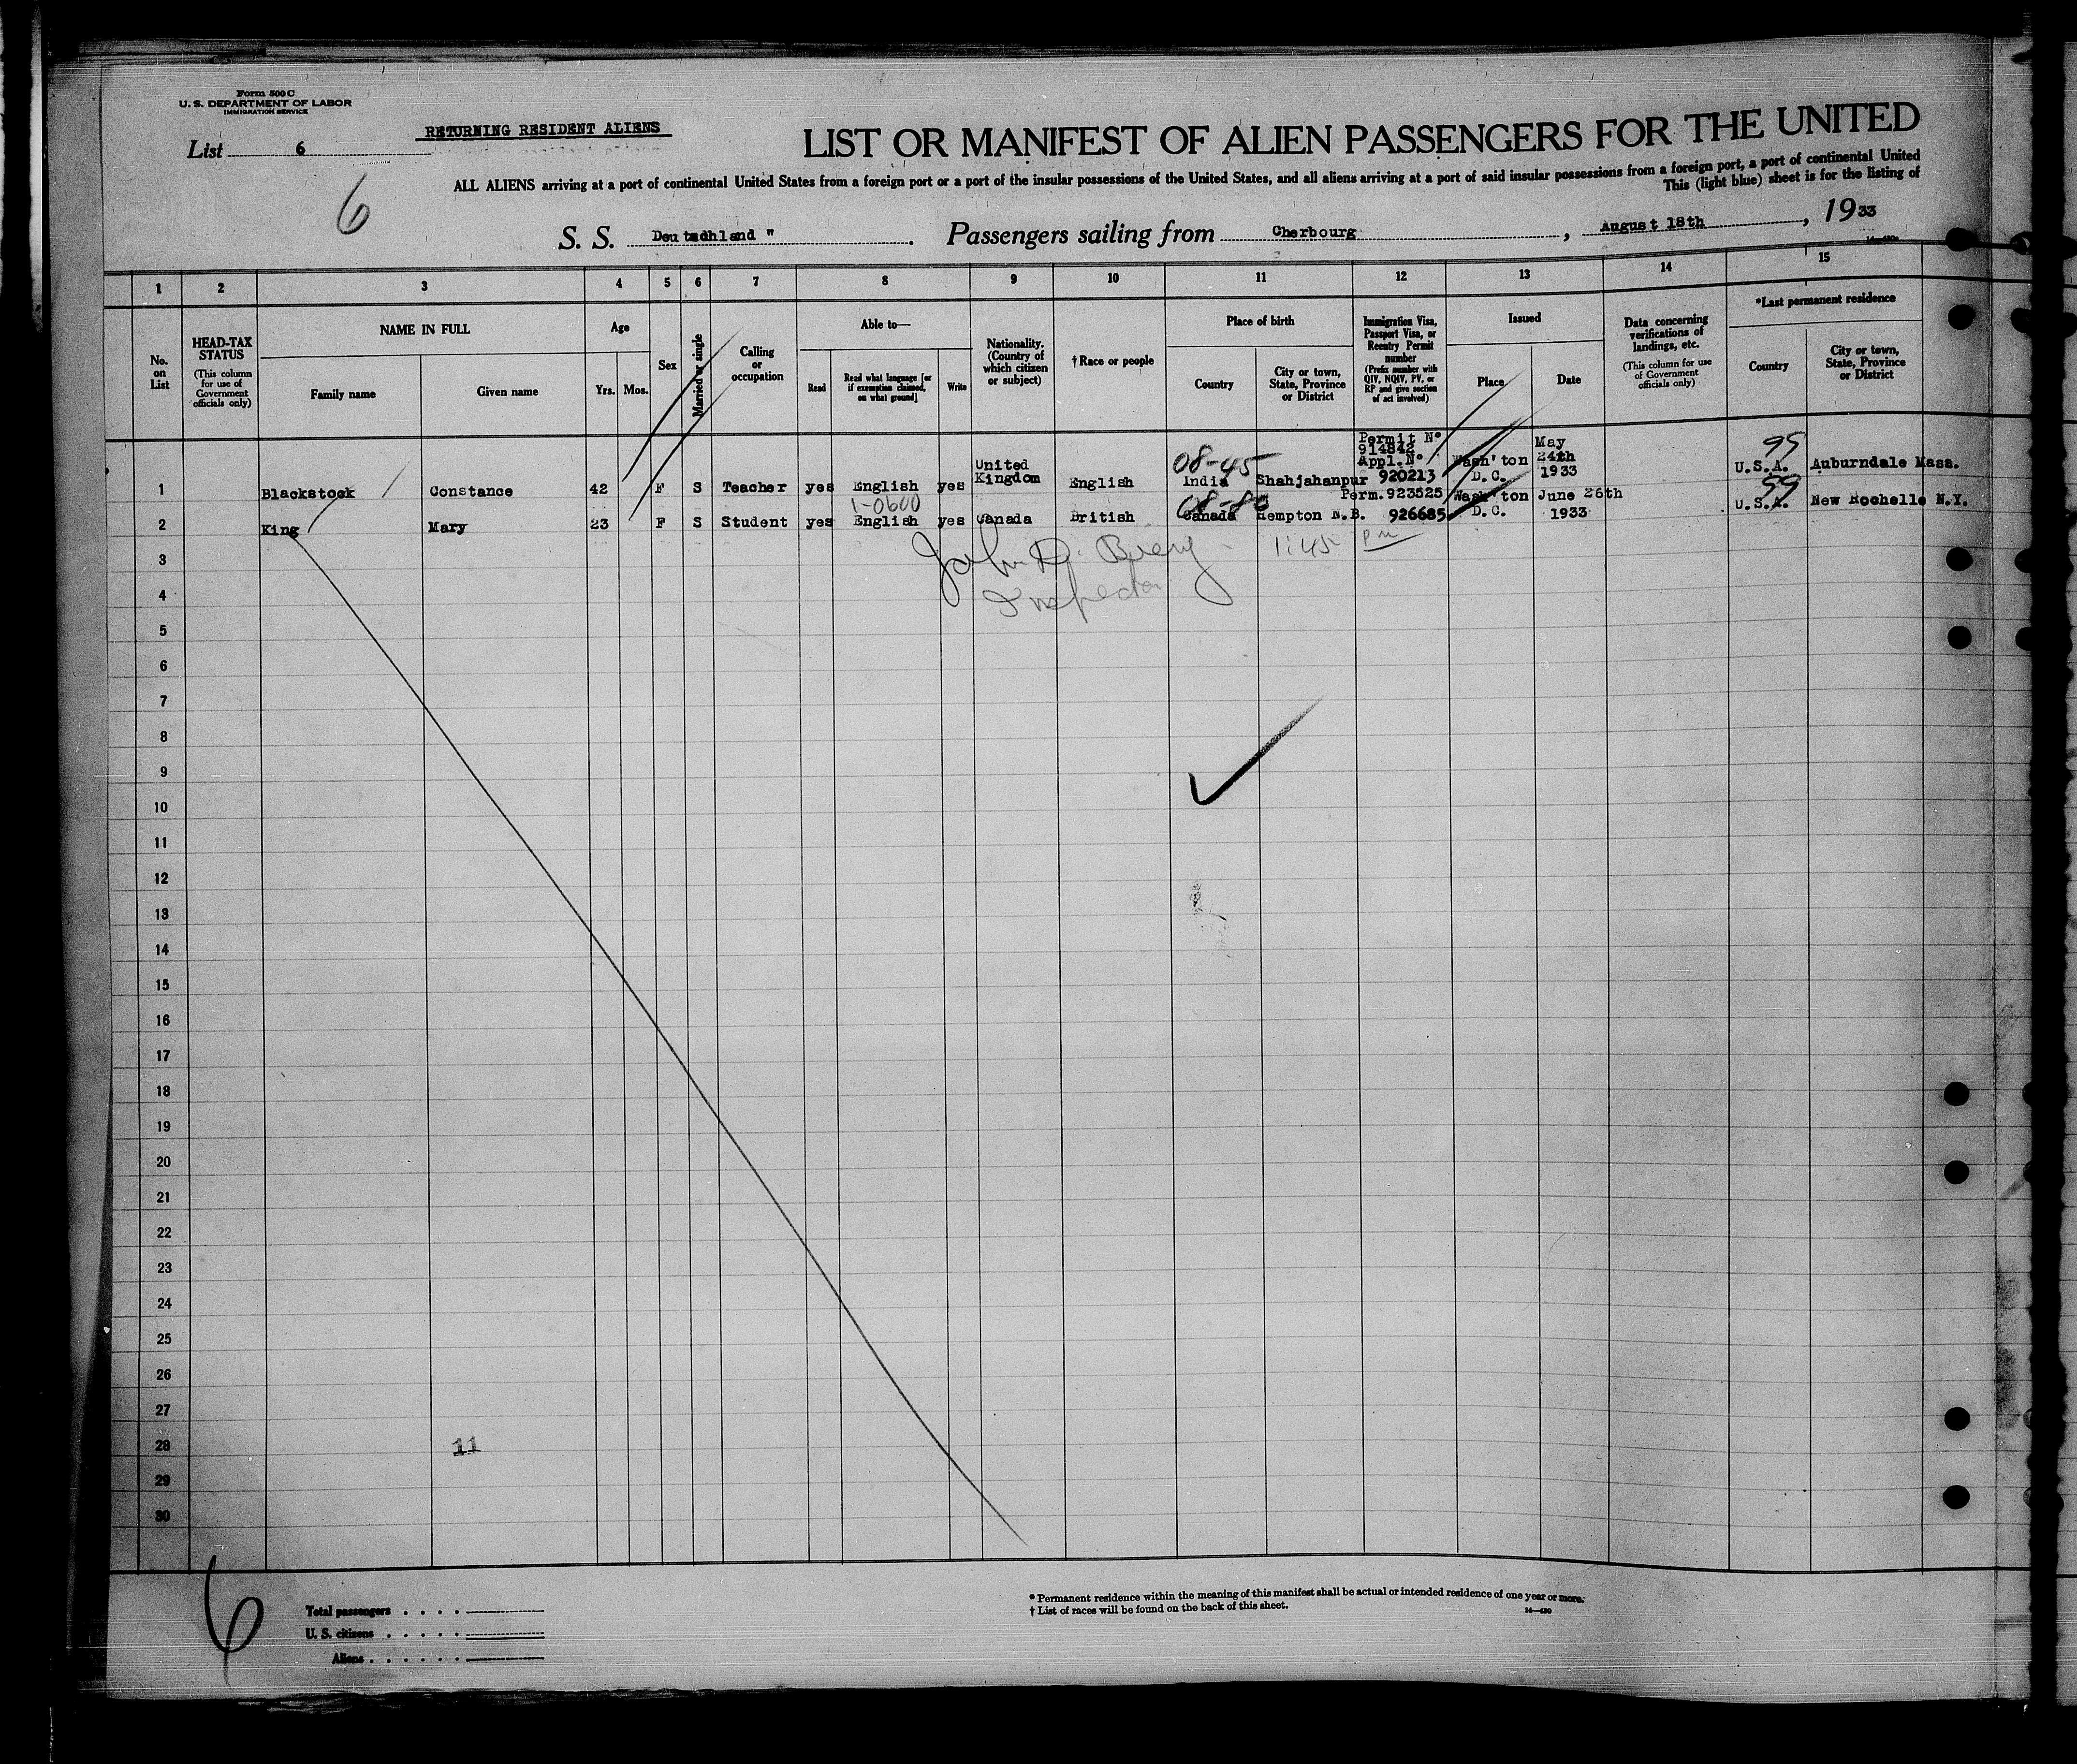 Form 500 C
U. S. DEPARTMENT OF LABOR
IMMIGRATION SERVICE
RETURNING RESIDENT ALIENS
List 6
6
LIST OR MANIFEST OF ALIEN PASSENGERS FOR THE UNITED
ALL ALIENS arriving at a port of continental United States from a foreign port or a port of the insular possessions of the United States, and all aliens arriving at a port of said insular possessions from a foreign port, a port of continental United
This (light blue) sheet is for the listing of
S. S. Deutschland " . Passengers sailing from Cherbourg , August 18th , 1933
1 2 3 4 5 6 7 8 9 10 11 12 13 14 15
No. on List
HEAD-TAX STATUS
(This column for use of Government officials only)
NAME IN FULL
Family name
Given name
Age
Yrs. Mos.
Sex
Married or single
Calling or occupation
Able to—
Read
Read what language [or if exemption claimed, on what ground]
Write
Nationality. (Country of which citizen or subject)
† Race or people
Place of birth
Country
City or town, State, Province or District
Immigration Visa, Passport Visa, or Reentry Permit number
(Prefix number with QIV, NQIV, PV, or RP and give section of act involved)
Issued
Place
Date
Data concerning verifications of landings, etc.
(This column for use of Government officials only)
*Last permanent residence
Country
City or town, State, Province or District
1 Blackstock Constance 42 F S Teacher yes English yes United Kingdom English 08-45 India Shahjahanpur Permit Nº 914842 Appl. Nº 920213 Wash'ton D.C. May 24th 1933 U.S.A. Auburndale Mass.
2 King Mary 23 F S Student yes 1-0600 English yes Canada British Canada Hempton N.B. Perm. 923525 926685 Wash'ton D.C. June 26th 1933 U.S.A. New Rochelle N.Y.
3 John D.
1:45 pm
4 Inspector
5
6
7
8
9
10
11
12
13
14
15
16
17
18
19
20
21
22
23
24
25
26
27
28 11
29
30
6
Total passengers
U. S. citizens
Aliens
* Permanent residence within the meaning of this manifest shall be actual or intended residence of one year or more.
† List of races will be found on the back of this sheet.
14—480